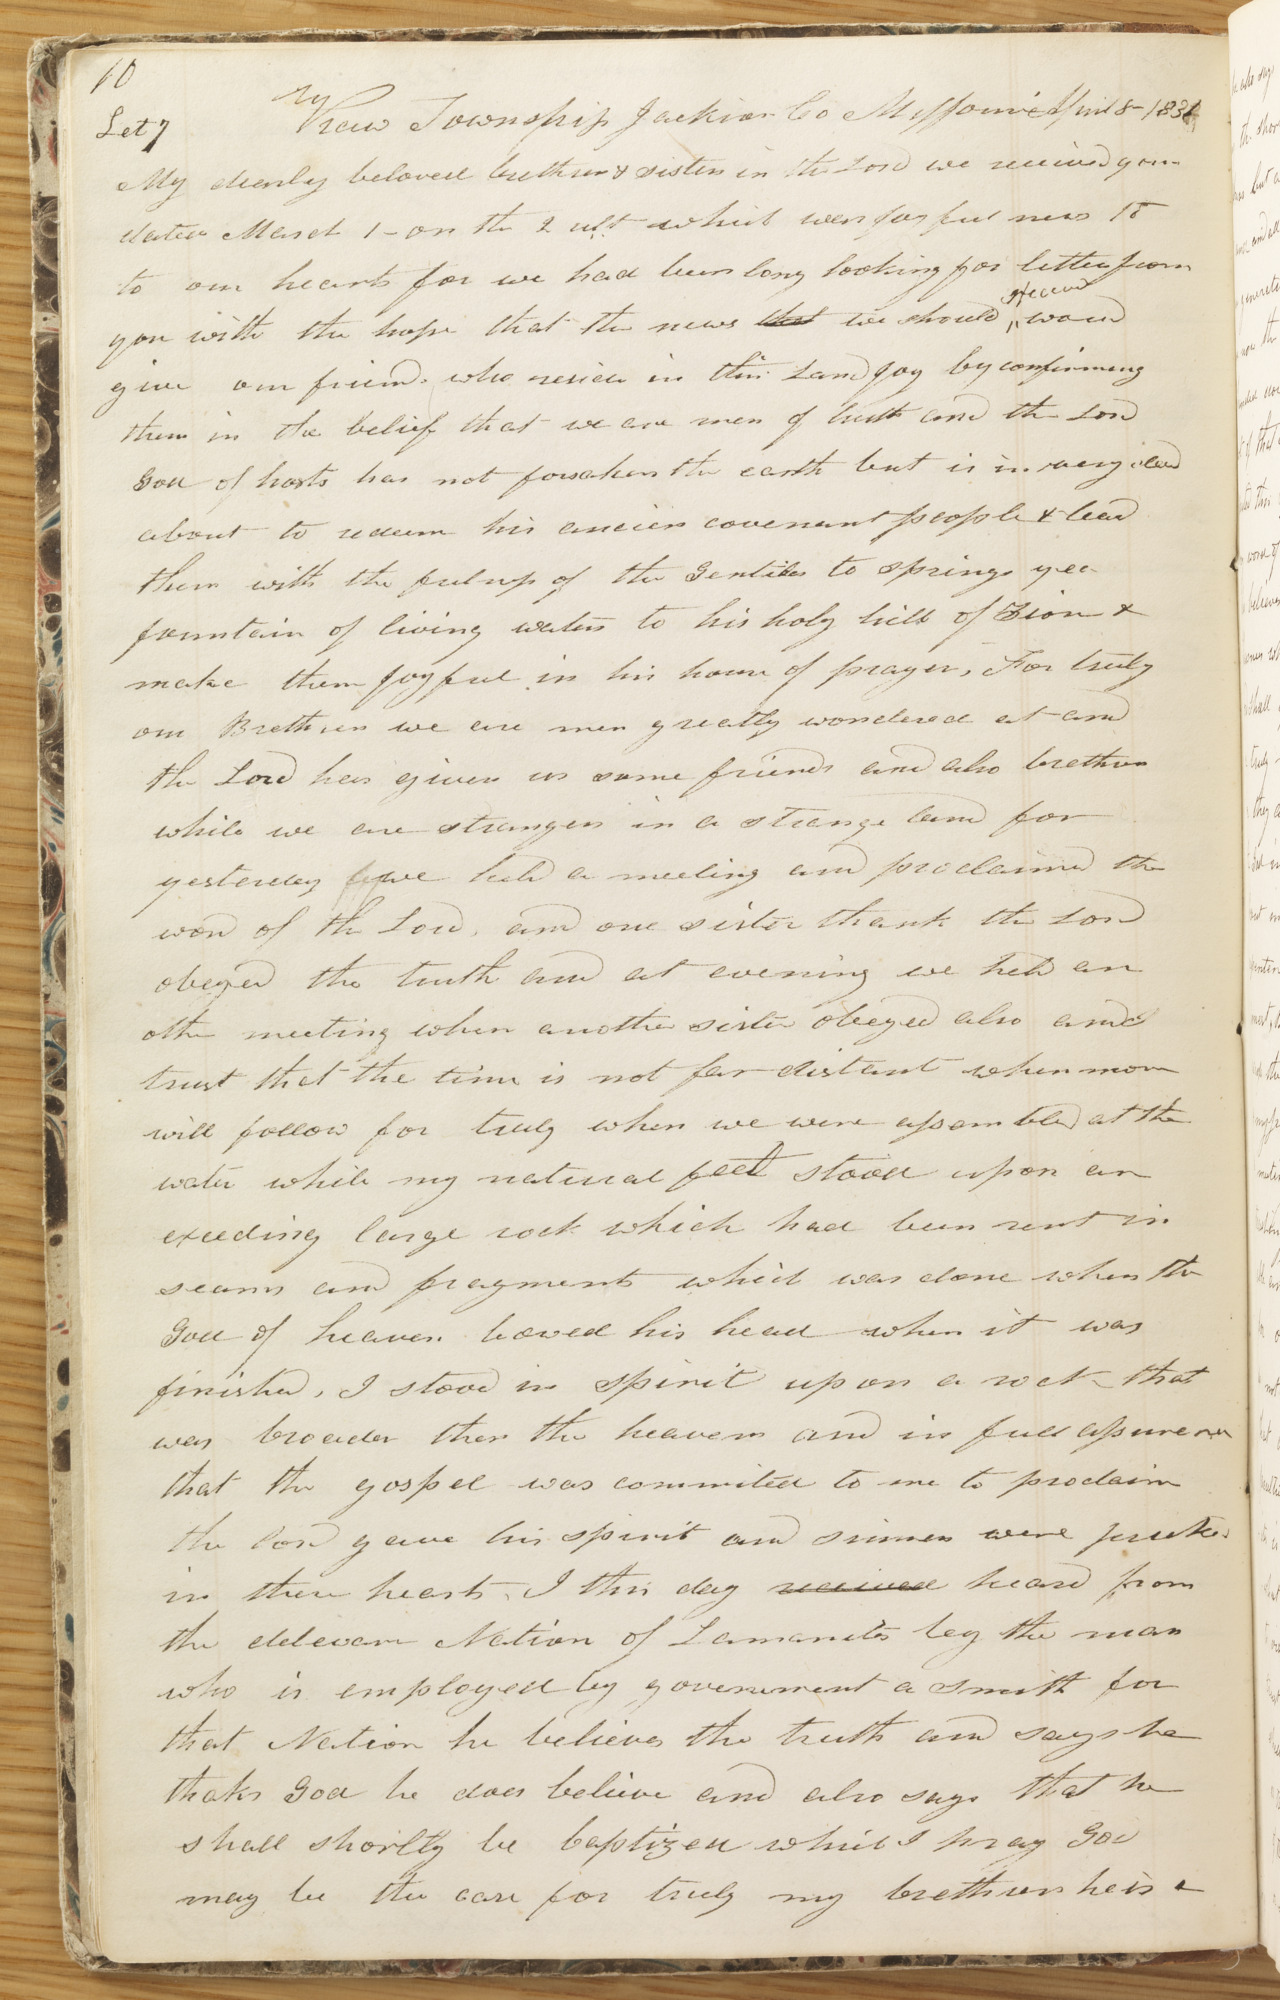 10
Let 7
Kaw Township Jackson Co Missouri April 8- 1831
My dearly beloved brethren & sisters in the Lord we received your
dated March 1- on the 2 ult which was joyful news to
to our hearts for we had been long looking for letter from
you with the hope that the news that we should receive would
give our friends who reside in this Land joy by confirming
them in the belief that we are men of truth and the Lord
God of hosts has not forsaken the earth but is in very deed
about to redeem his ancien covenant people & lead
them with the fulnys of the Gentiles to springs yea
fountain of living waters to his holy hill of Zion &
make them joyful in his house of prayer, For truly
our Brethren we are men greatly wondered at and
the Lord has given us some friends and also brethren
while we are strangers in a strange land for
yesterday we held a meeting and proclaimed the
word of the Lord, and one sister thank the Lord
obeyed the truth and at evening we held an
other meeting when another sister obeyed also and
trust that the time is not far distant when more
will follow for truly when we were assembled at the
water while my natural feet stood upon an
exceeding large rock which had been rent in
seams and fragments which was done when the
God of heaven bowed his head when it was
finished, I stood in spirit upon a rock that
was broader then the heavens and in full assurence
that the gospel was commited to me to proclaim
the Lord gave his spirit and sinners were pricked
in there hearts, I this day received heard from
the deleware Nation of Lamanites by the man
who is employed by government a smith for
that Nation he believes the truth and says he
thaks God he does believe and also says that he
shall shortly be baptized which I pray God
may be the case for truly my brethren he is a